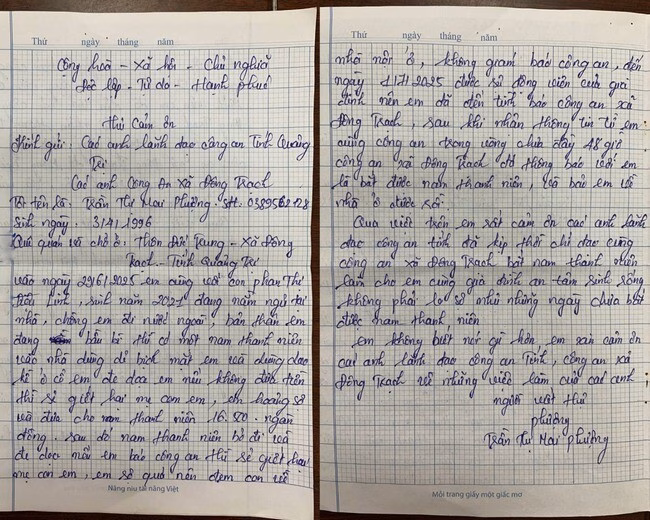 Thứ ngày tháng năm
Cộng hoà - Xã hội - Chủ nghĩa
Độc lập - Tự do - Hạnh phúc
Thư Cảm ơn
Kính gửi: Các anh lãnh đạo công an Tỉnh Quảng
Trị
Các anh Công An Xã Đông Trạch
Tôi tên là: Trần Thị Mai Phương. SĐt:
Sinh ngày: 3/4/1996
Quê quán và chỗ ở: Thôn Đức Trung - Xã Đông
Trạch - Tỉnh Quảng Trị
vào ngày 29/6/2025 em cùng với con phan Thị
sinh năm 2021 đang nằm ngủ tại
nhà, chồng em đi nước ngoài, bản thân em
đang bầu bì thì có một nam thanh niên
vào nhà dùng bịch mặt em và dùng dao
kề ở cổ em, đe doạ em nếu không đưa tiền
thì sẽ giết hai mẹ con em, em hoảng sợ
và đưa cho nam thanh niên ngàn
đồng. sau đó nam thanh niên bỏ đi và
đe doạ nếu em báo công an thì sẽ giết hai
mẹ con em, em sợ quá nên đem con về
Nâng niu tài năng Việt
Thứ ngày tháng năm
nhà nội ở, không giám báo công an, đến
ngày 1/7/2025 được sự động viên của gia
đình nên em đã đến trình báo công an xã
Đông Trạch, sau khi nhận thông tin từ em
cùng công an trong vòng chưa đầy 48 giờ
công an xã Đông Trạch đã thông báo với em
là bắt được nam thanh niên, và bảo em về
nhà ở được rồi.
Qua việc trên em rất cảm ơn các anh lãnh
đạo công an tỉnh đã kịp thời chỉ đạo cùng
công an xã Đông Trạch bắt nam thanh niên
làm cho em cùng gia đình an tâm sinh sống
không phải lo sợ như những ngày chưa bắt
được nam thanh niên
em không biết nói gì hơn, em xin cảm ơn
các anh lãnh đạo công an Tỉnh, công an xã
Đông Trạch về những việc làm của các anh
người viết thư
phương
Trần Thị Mai Phương
Mỗi trang giấy một giấc mơ